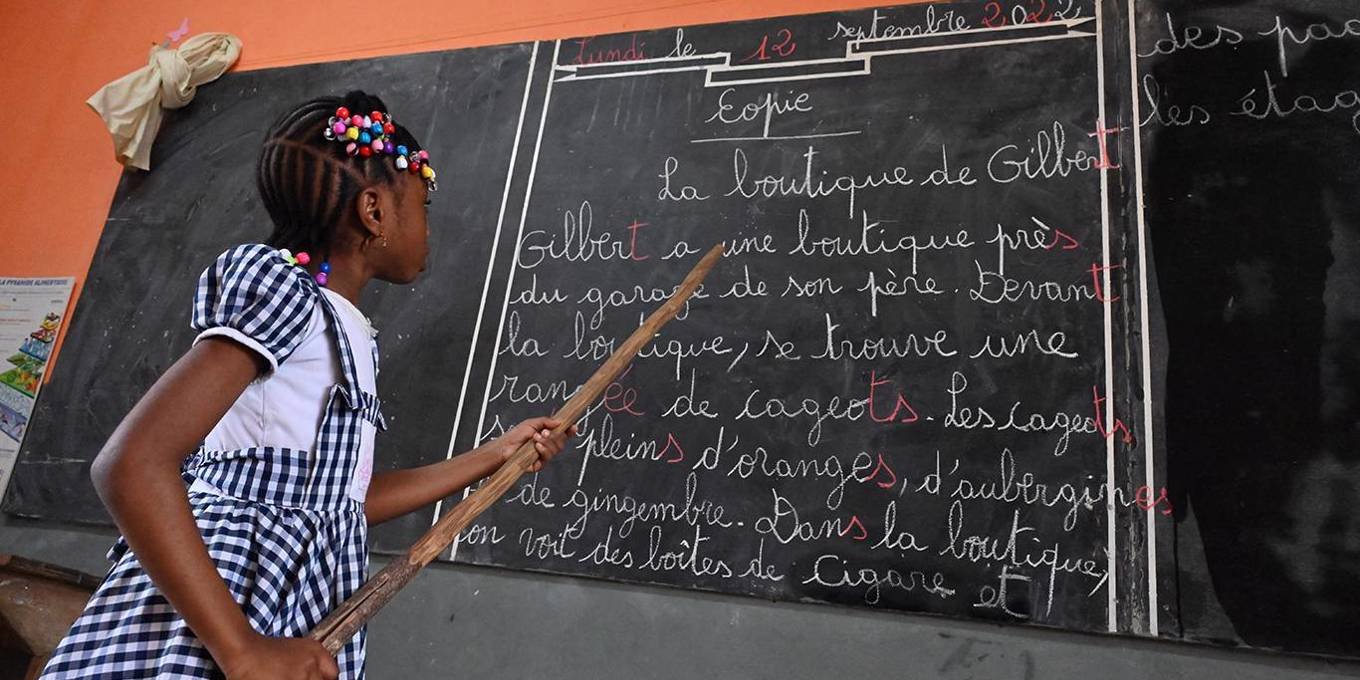 LA PYRAMIDE ALIMENTAIRE
Lundi le 12 septembre 2022
Copie
La boutique de Gilbert
Gilbert a une boutique près
du garage de son père. Devant
la boutique, se trouve une
rangée de cageots. Les cageots
pleins d'oranges, d'aubergines
de gingembre. Dans la boutique,
on voit des boîtes de Cigare et
des
les étag